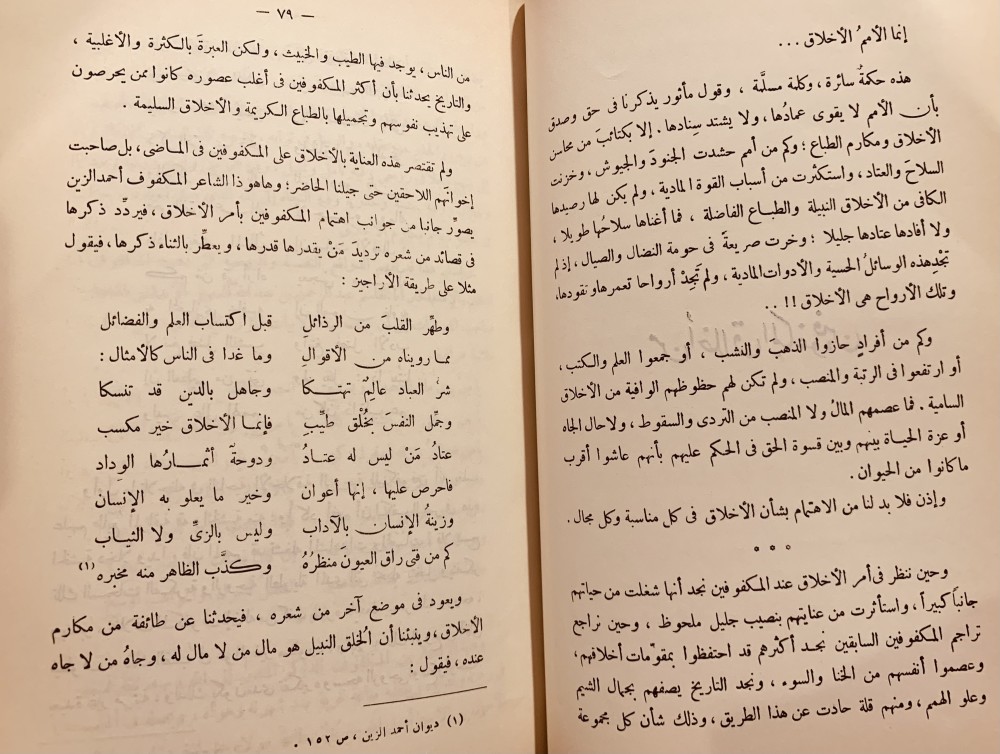 إنما الأممُ الأخلاق...
هذه حكمةٌ سائرة، وكلمة مسلَّمة، وقول مأثور يذكرنا فى حق وصدق
بأن الأمم لا يقوى عمادُها، ولا يشتد سِنادها. إلا بكتائبَ من محاسن
الأخلاق ومكارم الطباع؛ وكم من أمم حشدت الجنودَ والجيوش، وخزنت
السلاحَ والعتاد، واستكثرت من أسباب القوة المادية، ولم يكن لها رصيدها
الكافى من الأخلاق النبيلة والطباع الفاضلة، فما أغناها سلاحُها طويلا،
ولا أفادها عتادها جليلا؛ وخرت صريعةً فى حومة النضال والصيال، إذ لم
تُجْدِ هذه الوسائلُ الحسية والأدوات المادية، ولم تَجِدْ أرواحا تعمرها وتقودها،
وتلك الأرواح هى الأخلاق!!..
وكم من أفرادٍ حازوا الذهبَ والنشب، أو جمعوا العلم والكتب،
أو ارتفعوا فى الرتبة والمنصب، ولم تكن لهم حظوظهم الوافية من الأخلاق
السامية. فما عصمهم المالُ ولا المنصب من التردى والسقوط، ولا حال الجاه
أو عزة الحياة بينهم وبين قسوة الحق فى الحكم عليهم بأنهم عاشوا أقرب
ما كانوا من الحيوان.
وإذن فلا بد لنا من الاهتمام بشأن الأخلاق فى كل مناسبة وكل مجال.
° ° °
وحين ننظر فى أمر الأخلاق عند المكفوفين نجد أنها شغلت من حياتهم
جانباً كبيراً، واستأثرت من عنايتهم بنصيب جليل ملحوظ، وحين نراجع
تراجم المكفوفين السابقين نجد أكثرهم قد احتفظوا بمقوّمات أخلاقهم،
وعصموا أنفسهم من الخنا والسوء، ونجد التاريخ يصفهم بجمال الشيم
وعلو الهمم، ومنهم قلة حادت عن هذا الطريق، وذلك شأن كل مجموعة
— ٧٩ —
من الناس، يوجد فيها الطيب والخبيث، ولكن العبرةَ بالكثرة والأغلبية،
والتاريخ يحدثنا بأن أكثر المكفوفين فى أغلب عصوره كانوا ممن يحرصون
على تهذيب نفوسهم وتجميلها بالطباع الكريمة والأخلاق السليمة.
ولم تقتصر هذه العناية بالأخلاق على المكفوفين فى الماضى، بل صاحبت
إخوانَهم اللاحقين حتى جيلنا الحاضر؛ وها هو ذا الشاعر المكفوف أحمد الزين
يصوِّر جانبا من جوانب اهتمام المكفوفين بأمر الأخلاق، فيردِّد ذكرها
فى قصائد من شعره ترديدَ مَنْ يقدرها قدرها، ويعطِّر بالثناء ذكرها، فيقول
مثلا على طريقة الأراجيز:
وطهِّر القلبَ من الرذائلِ قبل اكتساب العلم والفضائل
مما رويناه من الأقوال وما غدا فى الناس كالأمثال:
شر العباد عالِمٌ تهتكا وجاهل بالدين قد تنسكا
وجمِّل النفسَ بخُلْق طيِّبِ فإنما الأخلاق خير مكسب
عتادُ مَنْ ليس له عتادُ ودوحةٌ أثمارُها الوِداد
فاحرص عليها، إنها أعوان وخير ما يعلو به الإنسان
وزينةُ الإنسان بالآداب وليس بالزىِّ ولا الثياب
كم من فتى راق العيونَ منظرُهُ وكذَّب الظاهر منه مخبره (١)
ويعود فى موضع آخر من شعره، فيحدثنا عن طائفة من مكارم
الأخلاق، وينبئنا أن الخلق النبيل هو مال من لا مال له، وجاهُ من لا جاه
عنده، فيقول:
(١) ديوان أحمد الزين، ص ١٥٢.